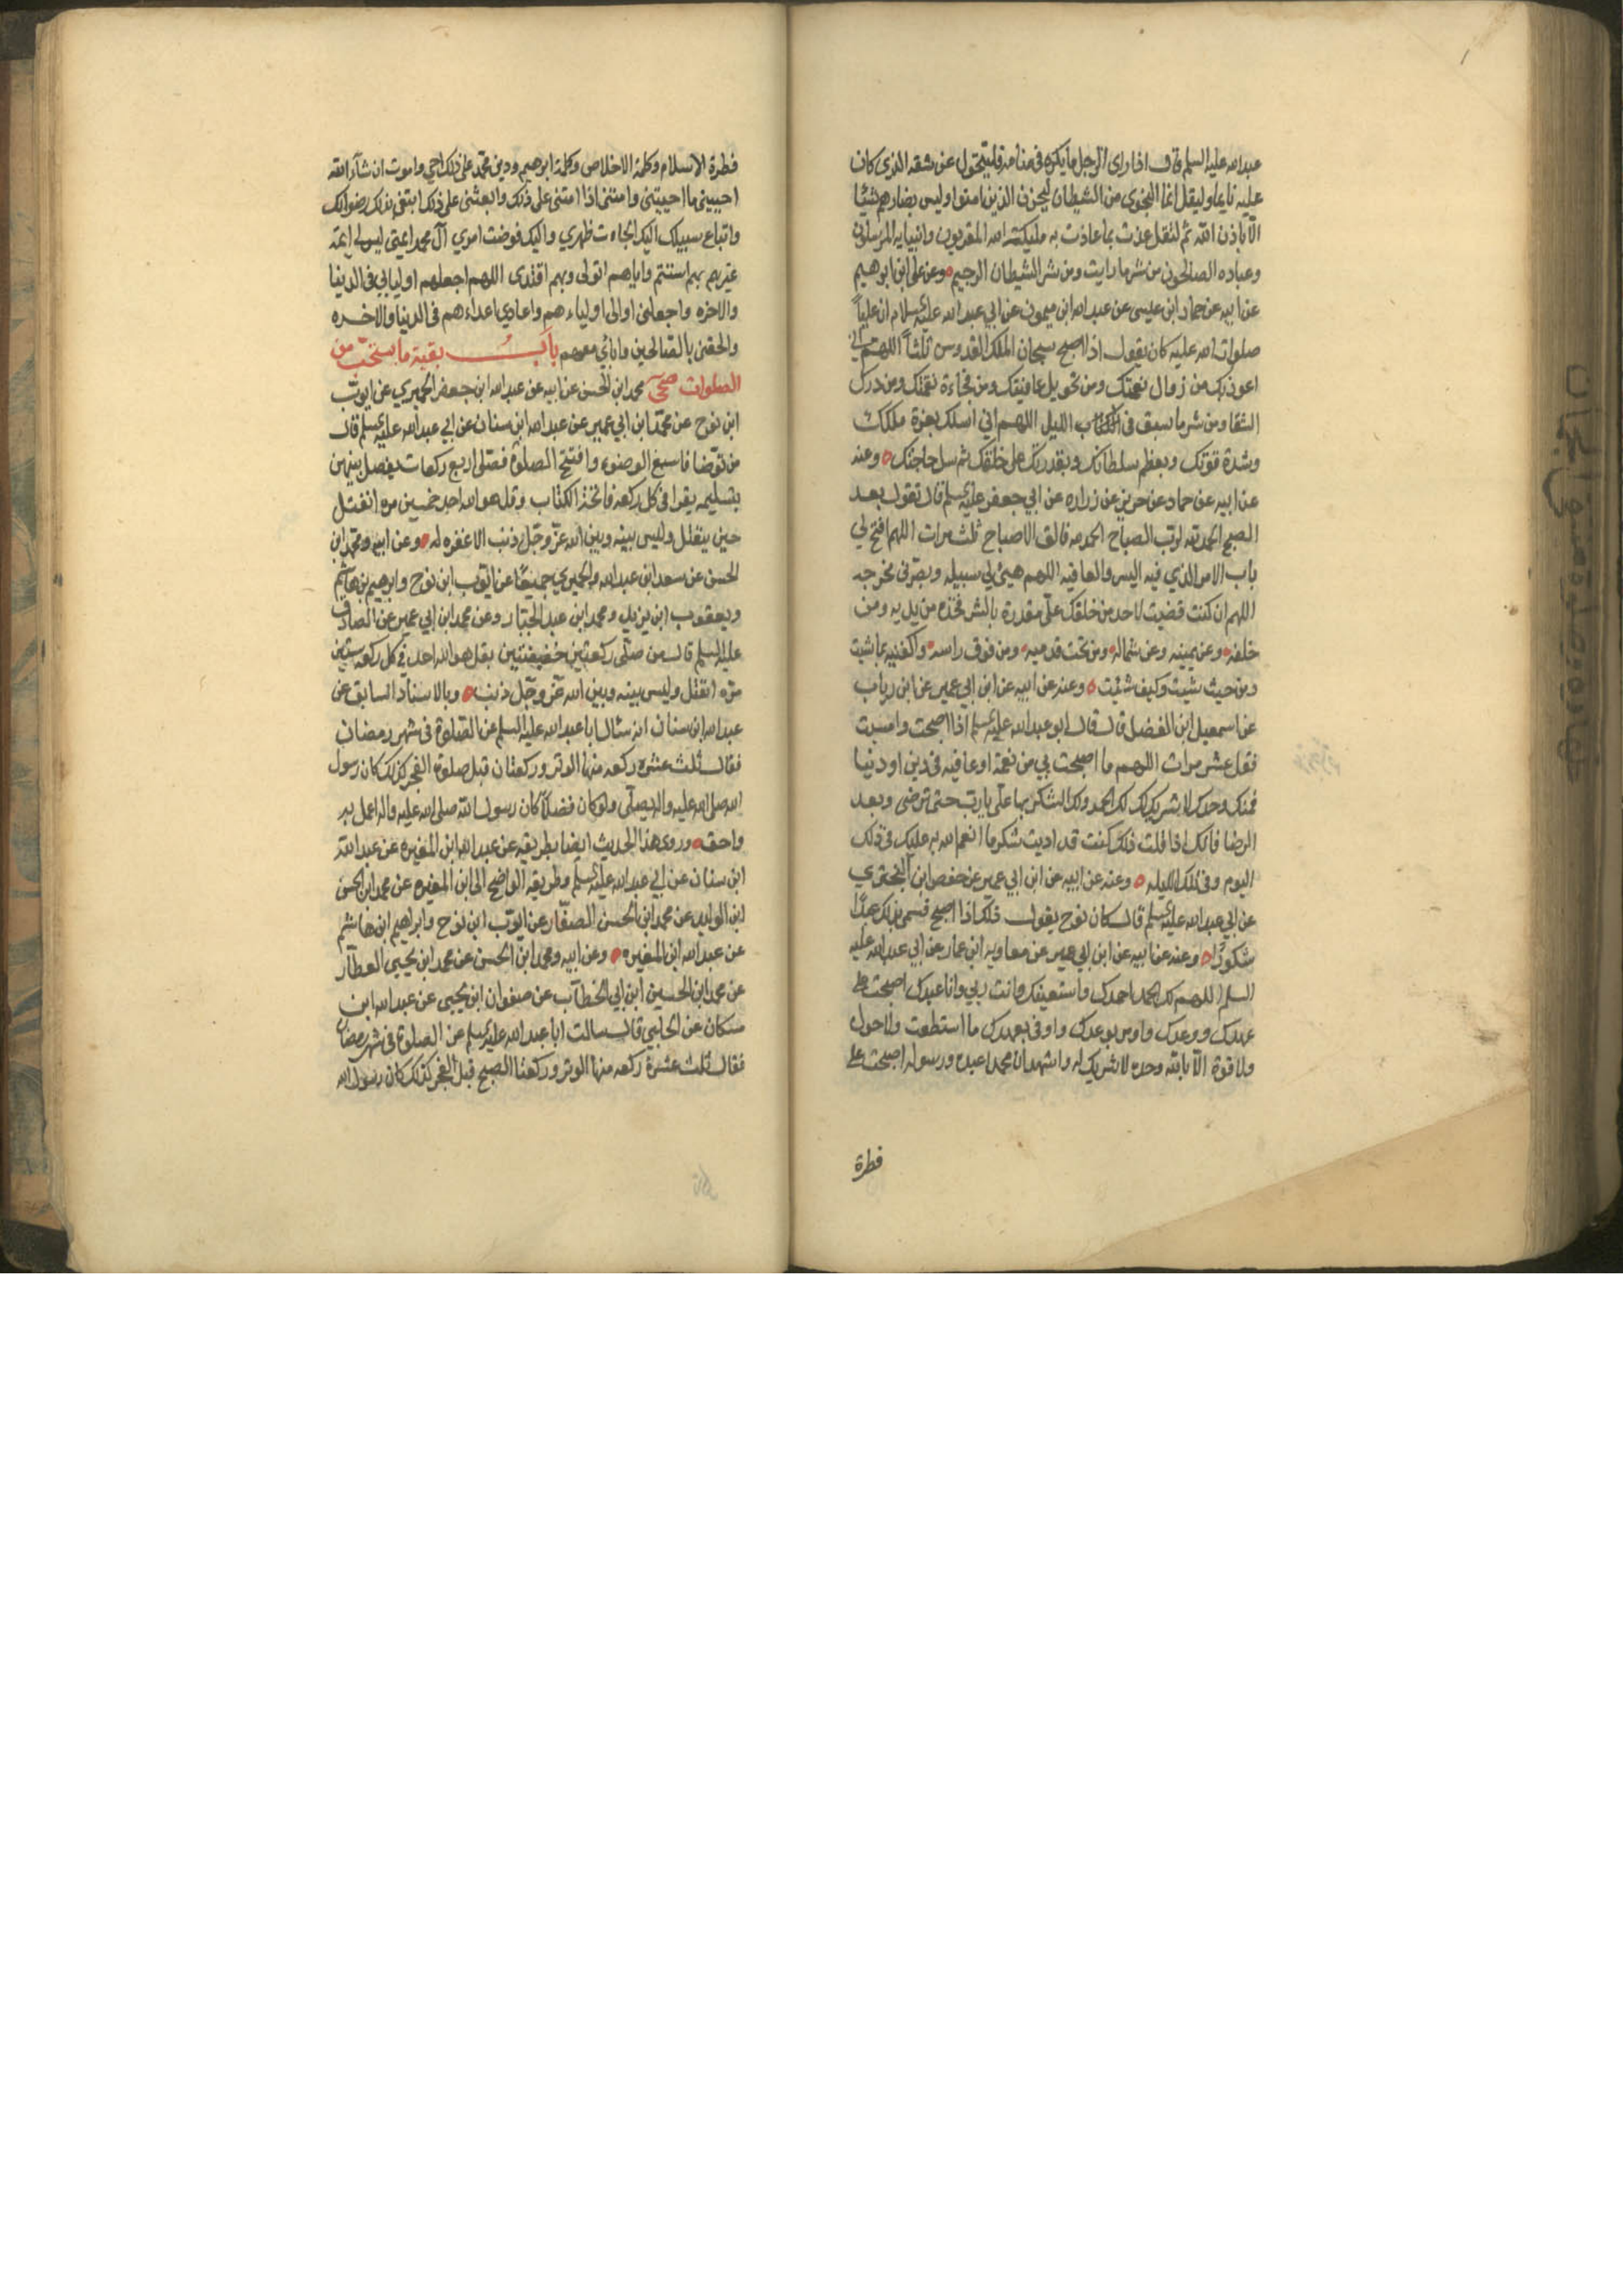 عبدالله عليه السلم قال اذا راى الرجل ما يكره فى منامه فليتحول عن شقه الذى كان
عليه نايما وليقل انما النجوى من الشيطان ليحزن الذين امنوا وليس بضارهم شيئا
الا باذن الله ثم لتقل عذت بما عاذت به مليكة الله المقربون وانبيايه المرسلون
وعباده الصالحون من شر ما رايت ومن شر الشيطان الرجيم وعن على ابن ابرهيم
عن ابيه عن حماد ابن عيسى عن عبدالله ابن ميمون عن ابي عبدالله عليه السلام ان علياً
صلوات الله عليه كان يقول اذا اصبح سبحان الملك القدوس ثلثاً اللهم اني
اعوذ بك من زوال نعمتك ومن تحويل عافيتك ومن فجاءة نقمتك ومن درك
الشقا ومن شر ما سبق فى الليل اللهم اني اسلك بعزة ملكك
وشدة قوتك وبعظم سلطانك وبقدرتك على خلقك ثم سل حاجتك وعنه
عن ابيه عن حماد عن حريز عن زراره عن ابي جعفر عليه السلم قال تقول بعد
الصبح الحمد لله لرب الصباح الحمد لله فالق الاصباح ثلث مرات اللهم افتح لي
باب الامر الذي فيه اليسر والعافيه اللهم هيئ لي سبيله وبصرنى مخرجه
اللهم ان كنت قضيت لاحد من خلقك على مقدرة بالشر فخذه من يديه ومن
خلفه وعن يمينه وعن شماله ومن تحت قدميه ومن فوق راسه واكفنيه بما شيت
ومن حيث شيت وكيف شئت وعنه عن ابيه عن ابن ابي عمير عن ابن رياب
عن اسمعيل ابن الفضل قال قال ابو عبدالله عليه السلم اذا اصبحت وامسيت
فقل عشر مرات اللهم ما اصبحت بي من نعمة او عافيه فى دين او دنيا
فمنك وحدك لا شريك لك لك الحمد ولك الشكر بها على يا رب حتى ترضى وبعد
الرضا فانك اذا قلت ذلك كنت قد اديت شكر ما انعم الله به عليك فى ذلك
اليوم وفى تلك الليله وعنه عن ابيه عن ابن ابي عمير عن حفص ابن البخترى
عن ابي عبدالله عليه السلم قال كان نوح يقول ذلك اذا اصبح فسمى بذلك عبدًا
شكورًا وعنه عن ابيه عن ابن ابي عمير عن معاويه ابن عمار عن ابي عبدالله عليه
السلم اللهم لك الحمد احمدك واستعينك وانت ربي وانا عبدك اصبحت على
عهدك ووعدك واومن بوعدك واوفى بعهدك ما استطعت ولا حول
ولا قوة الا بالله وحده لا شريك له واشهد ان محمدا عبده ورسوله اصبحت على
فطرة
فطرة الاسلام وكلمة الاخلاص وكلمة ابرهيم ودين محمد على ذلك احي واموت ان شاء الله
احييني ما احييتنى وامتنى اذا امتنى على ذلك وابعثنى على ذلك ابتغي بذلك رضوانك
واتباع سبيلك اليك الجات ظهري واليك فوضت امري آل محمد ايمتي ليس لي ايمة
غيرهم بهم استنم واياهم اتولى وبهم اقتدى اللهم اجعلهم اوليايى فى الدنيا
والاخره واجعلنى اوالى اولياءهم واعادي اعداءهم فى الدنيا والاخره
والحقنى بالصالحين وابائي معهم باب بقية ما يستحب من
الصلوات صحى محمد ابن الحسن عن ابيه عن عبدالله ابن جعفر الحميري عن ايوب
ابن نوح عن محمد ابن ابي عمير عن عبدالله ابن سنان عن ابي عبدالله عليه السلم قال
من توضا فاسبغ الوضوء وافتتح الصلوة فصلى اربع ركعات يفصل بينهن
بتسليمه يقرا فى كل ركعه فاتحة الكتاب وقل هو الله احد خمسين مره انفتل
حين ينفتل وليس بينه وبين الله عز وجل ذنب الا غفره له وعن ابيه ومحمد ابن
الحسن عن سعد ابن عبدالله والحميري جميعًا عن ايوب ابن نوح وابرهيم بن هاشم
ويعقوب ابن يزيد ومحمد ابن عبد الجبار وعن محمد ابن ابي عمير عن الصادق
عليه السلم قال من صلى ركعتين خفيفتين بقل هو الله احد في كل ركعه ستين
مره انفتل وليس بينه وبين الله عز وجل ذنب وبالاسناد السابق عن
عبدالله ابن سنان انه سئال ابا عبدالله عليه السلم عن الصلوة فى شهر رمضان
فقال ثلث عشره ركعه منها الوتر وركعتان قبل صلوة الفجر كذلك كان رسول
الله صلى الله عليه واله يصلى ولو كان فضلا كان رسول الله صلى الله عليه واله اعمل به
واحق وروى هذا الحديث ايضا بطريقه عن عبدالله ابن المغيره عن عبدالله
ابن سنان عن ابي عبدالله عليه السلم وطريقه الواضح الى ابن المغيره عن محمد ابن الحسن
ابن الوليد عن محمد ابن الحسن الصفار عن ايوب ابن نوح وابراهيم ابن هاشم
عن عبدالله ابن المغيره وعن ابيه ومحمد ابن الحسن عن محمد ابن يحيى العطار
عن محمد ابن الحسين ابن ابي الخطاب عن صفوان ابن يحيى عن عبدالله ابن
مسكان عن الحلبي قال سالت ابا عبدالله عليه السلم عن الصلوة فى شهر رمضان
فقال ثلث عشرة ركعه منها الوتر وركعتا الصبح قبل الفجر كذلك كان رسول الله